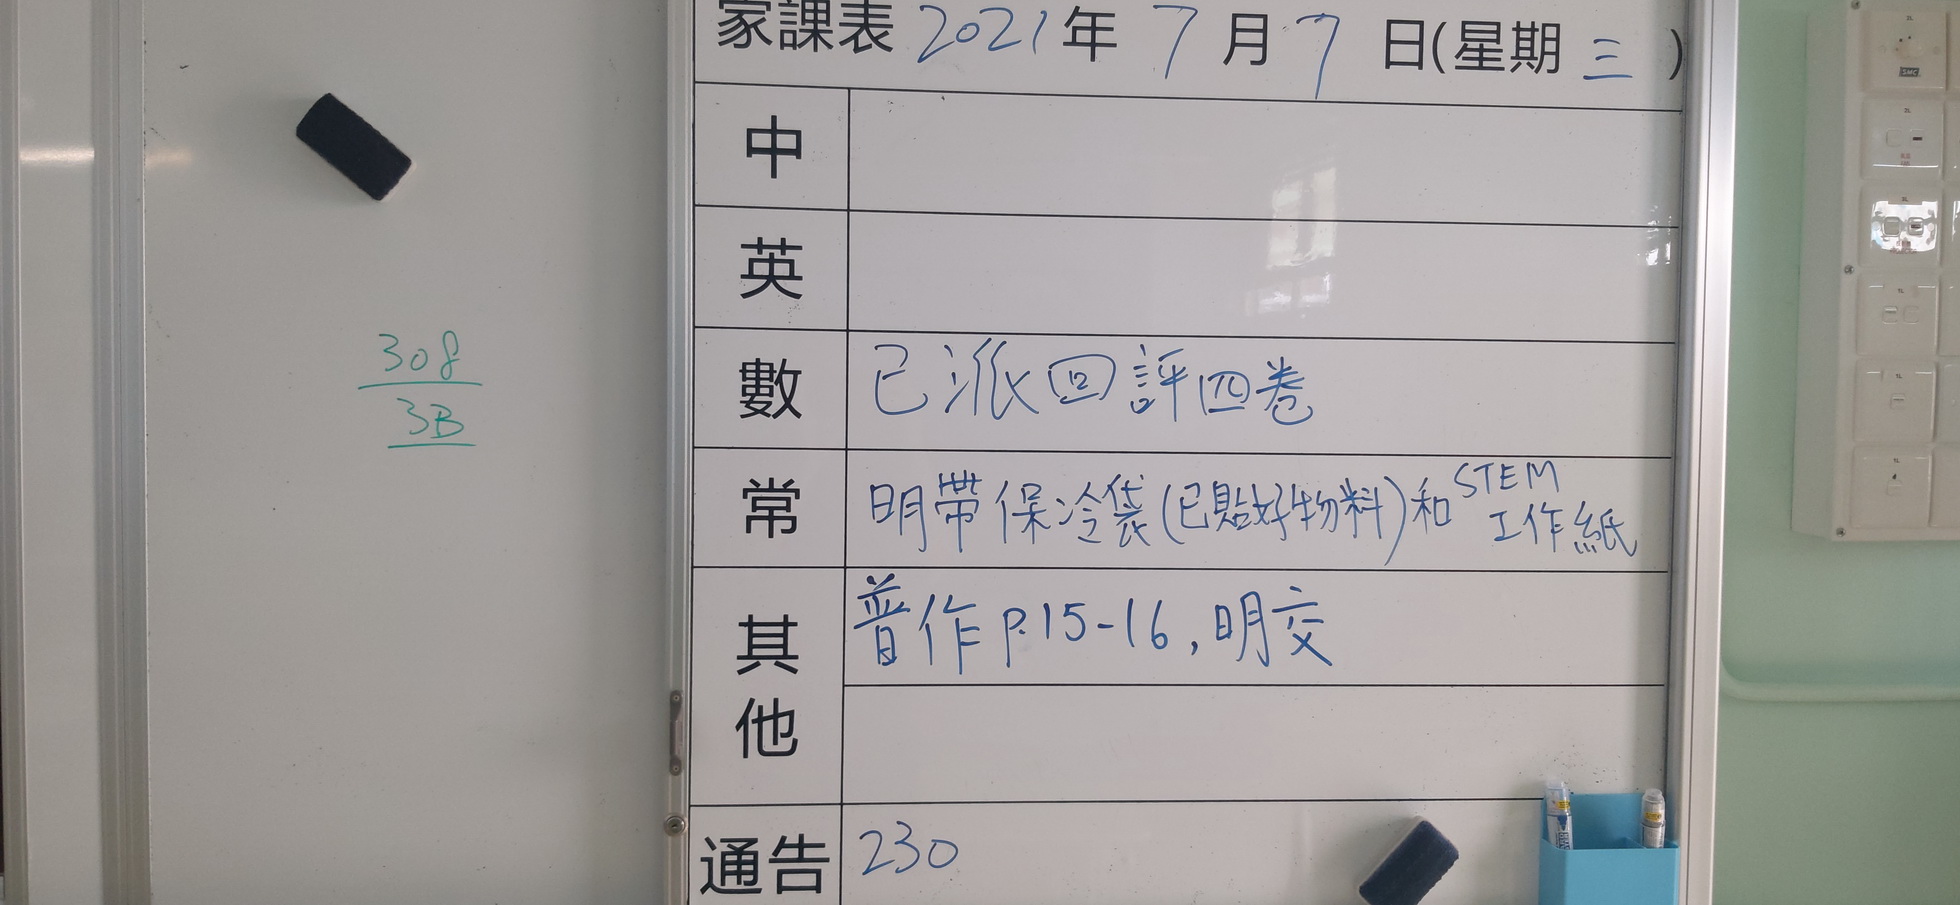 308
3B
家課表 2021年 7月 7日(星期三)
中
英
數 已派回評四卷
常 明帶保冷袋(已貼好物料)和STEM
工作紙
其他 普作 P.15-16, 明交
通告 230